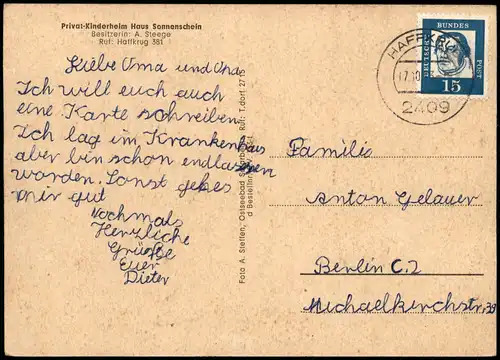 Privat-Kinderheim Haus Sonnenschein
Besitzerin: A. Steege
Ruf: Haffkrug 381
Liebe Oma und Opa
Ich will euch auch
eine Karte schreiben
Ich lag im Krankenhaus
aber bin schon endlassen
worden. Sonst gehes
mir gut
Nochmals
Herzliche
Grüße
Euer
Dieter
Foto A. Steffen, Ostseebad Ruf: T.dorf 2715
BUNDES
DEUTSCHE
POST
15
HAFFKRUG
2409
Familie
Anton Gelauer
Berlin C.2
Michaelkirchstr. 39